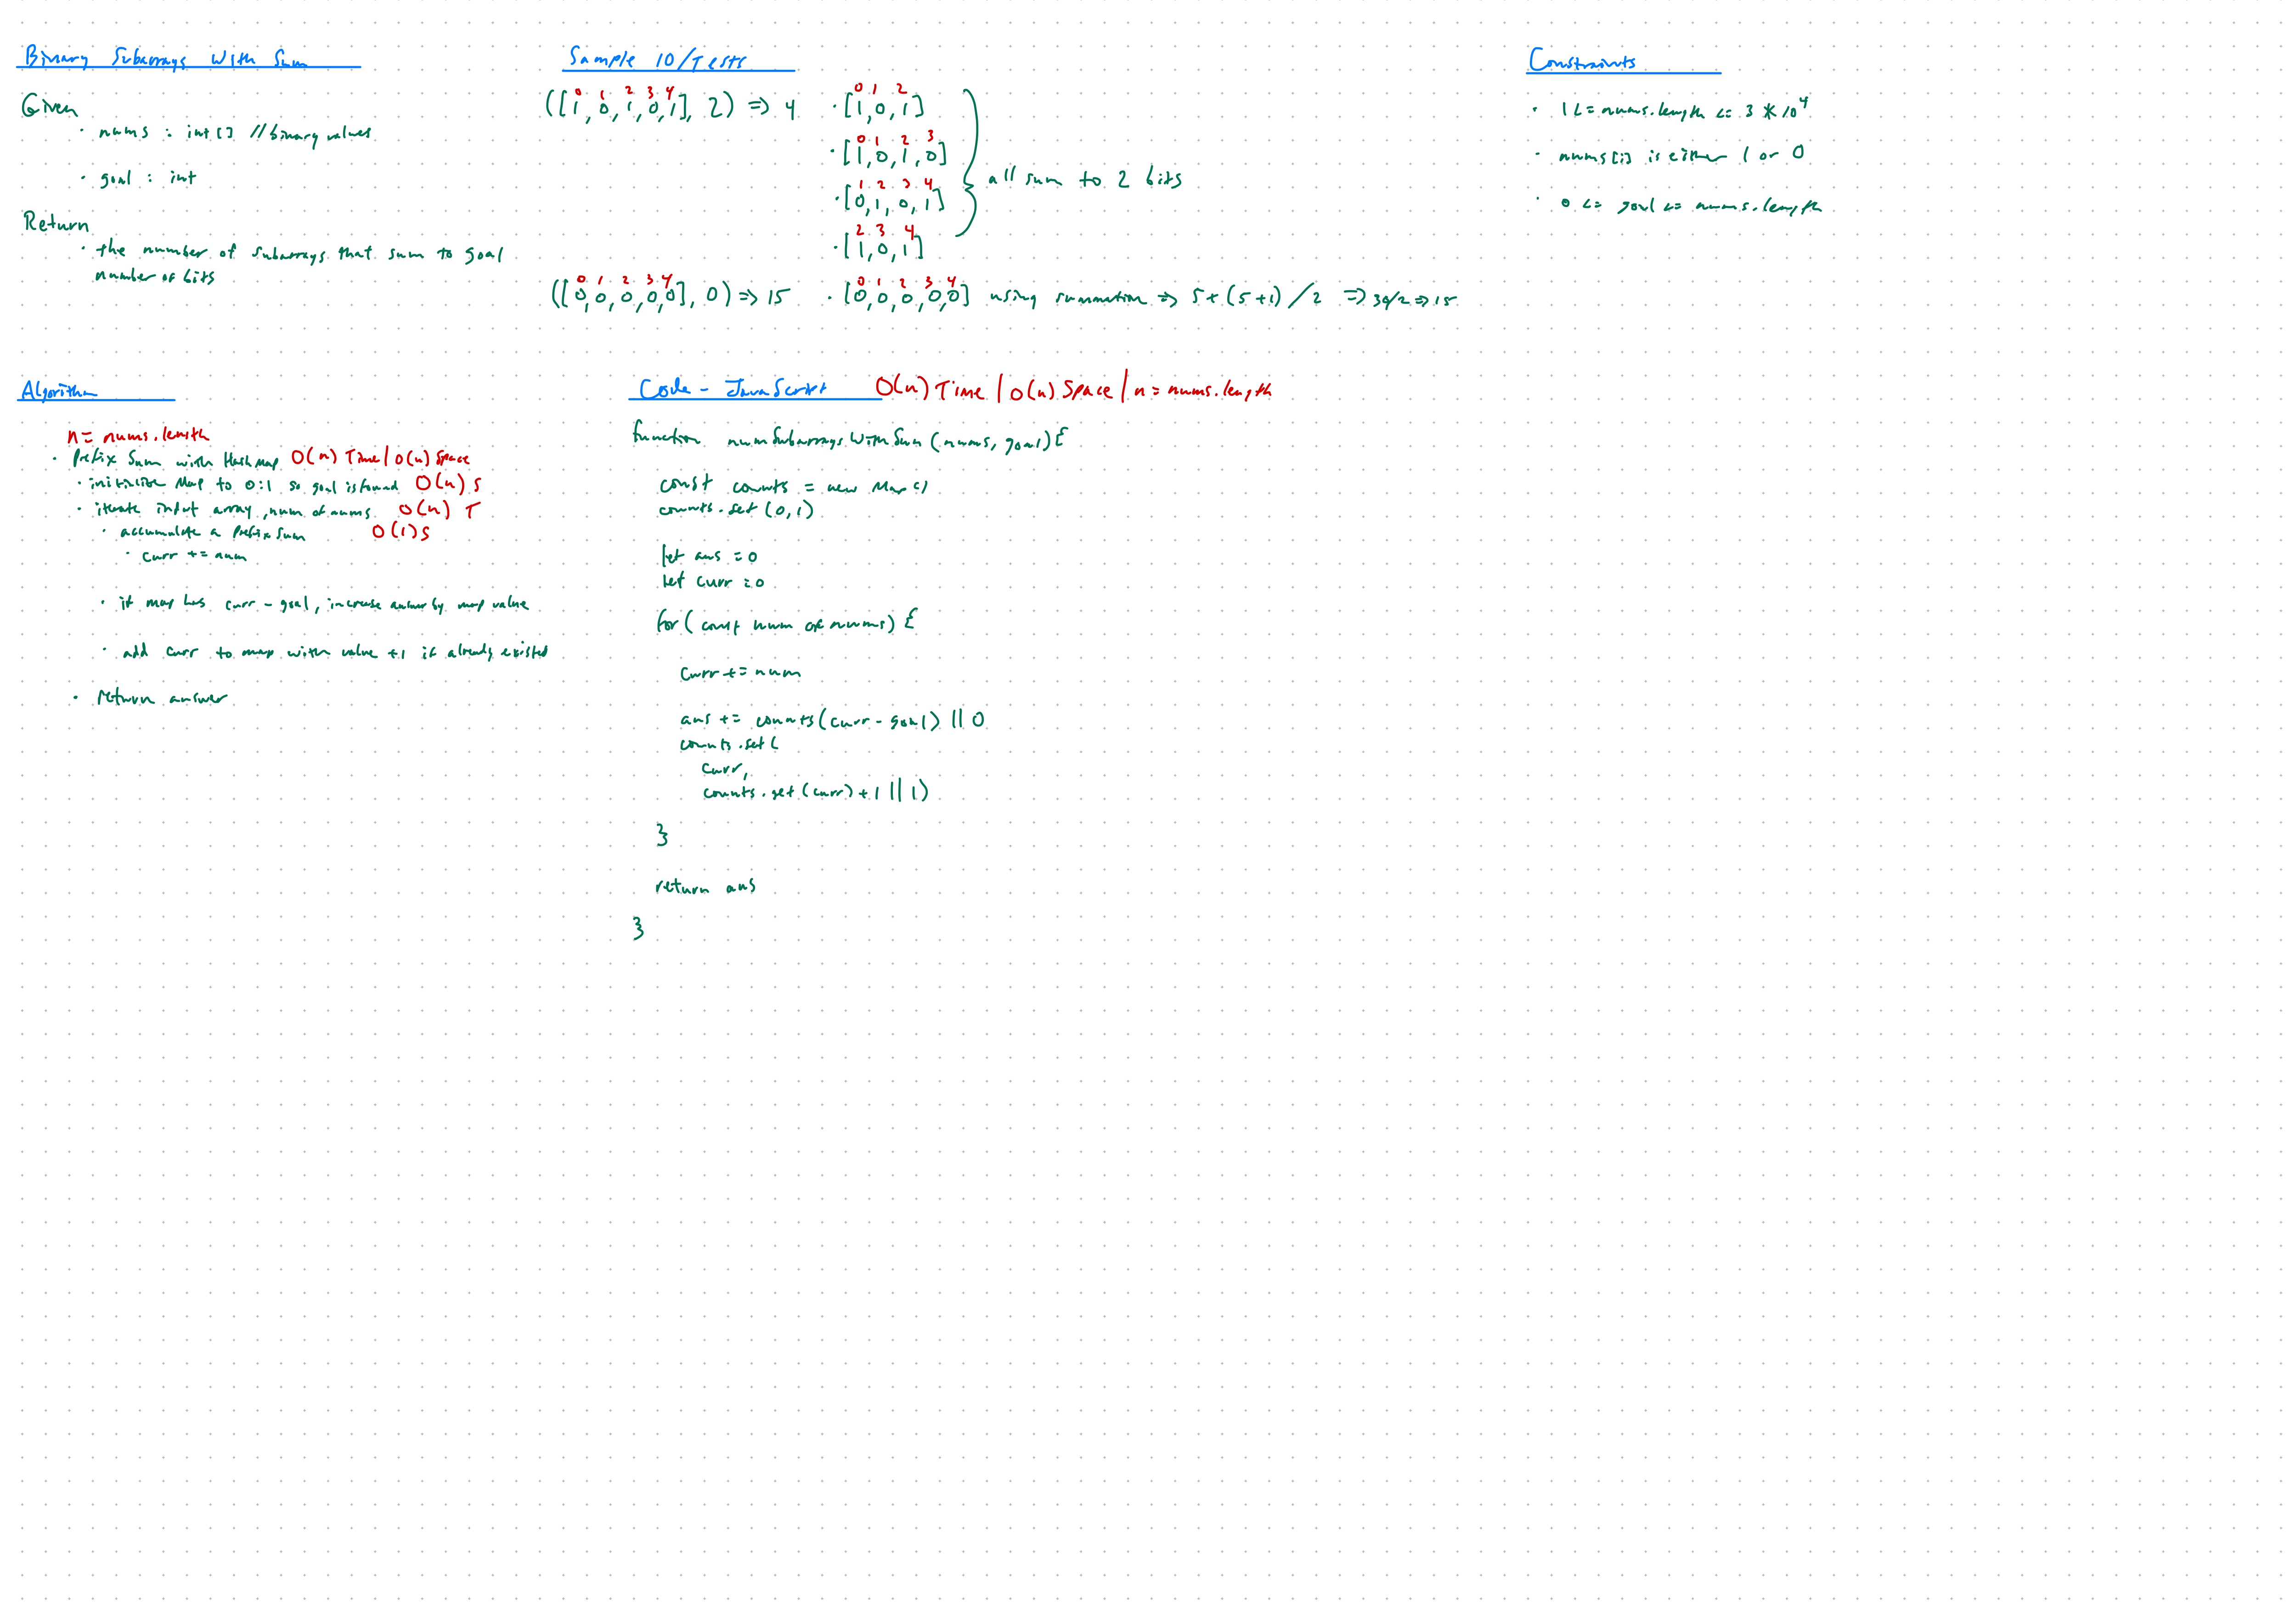 Binary Subarrays With Sum
Given
· nums : int[] //binary values
· goal : int
Return
· the number of subarrays that sum to goal
number of bits
Sample IO/Tests
0 1 2 3 4
([1, 0, 1, 0, 1], 2) => 4
0 1 2
· [1, 0, 1]
0 1 2 3
· [1, 0, 1, 0]
1 2 3 4
· [0, 1, 0, 1]
2 3 4
· [1, 0, 1]
all sum to 2 bits
0 1 2 3 4
([0, 0, 0, 0, 0], 0) => 15
0 1 2 3 4
· [0, 0, 0, 0, 0] using summation => 5 * (5+1) / 2 => 30/2 => 15
Constraints
· 1 <= nums.length <= 3 * 10^4
· nums[i] is either 1 or 0
· 0 <= goal <= nums.length
Algorithm
n = nums.length
· Prefix Sum with HashMap O(n) Time / O(n) Space
· initialize Map to 0:1 so goal is found O(n) S
· iterate input array, num of nums O(n) T
· accumulate a prefix sum O(1) S
· curr += num
· if map has curr - goal, increase answer by map value
· add curr to map with value +1 if already existed
· return answer
Code - JavaScript O(n) Time / O(n) Space / n = nums.length
function numSubarraysWithSum (nums, goal) {
const counts = new Map()
counts.set(0,1)
let ans = 0
let curr = 0
for (const num of nums) {
curr += num
ans += counts(curr - goal) || 0
counts.set(
curr,
counts.get(curr) + 1 || 1)
}
return ans
}